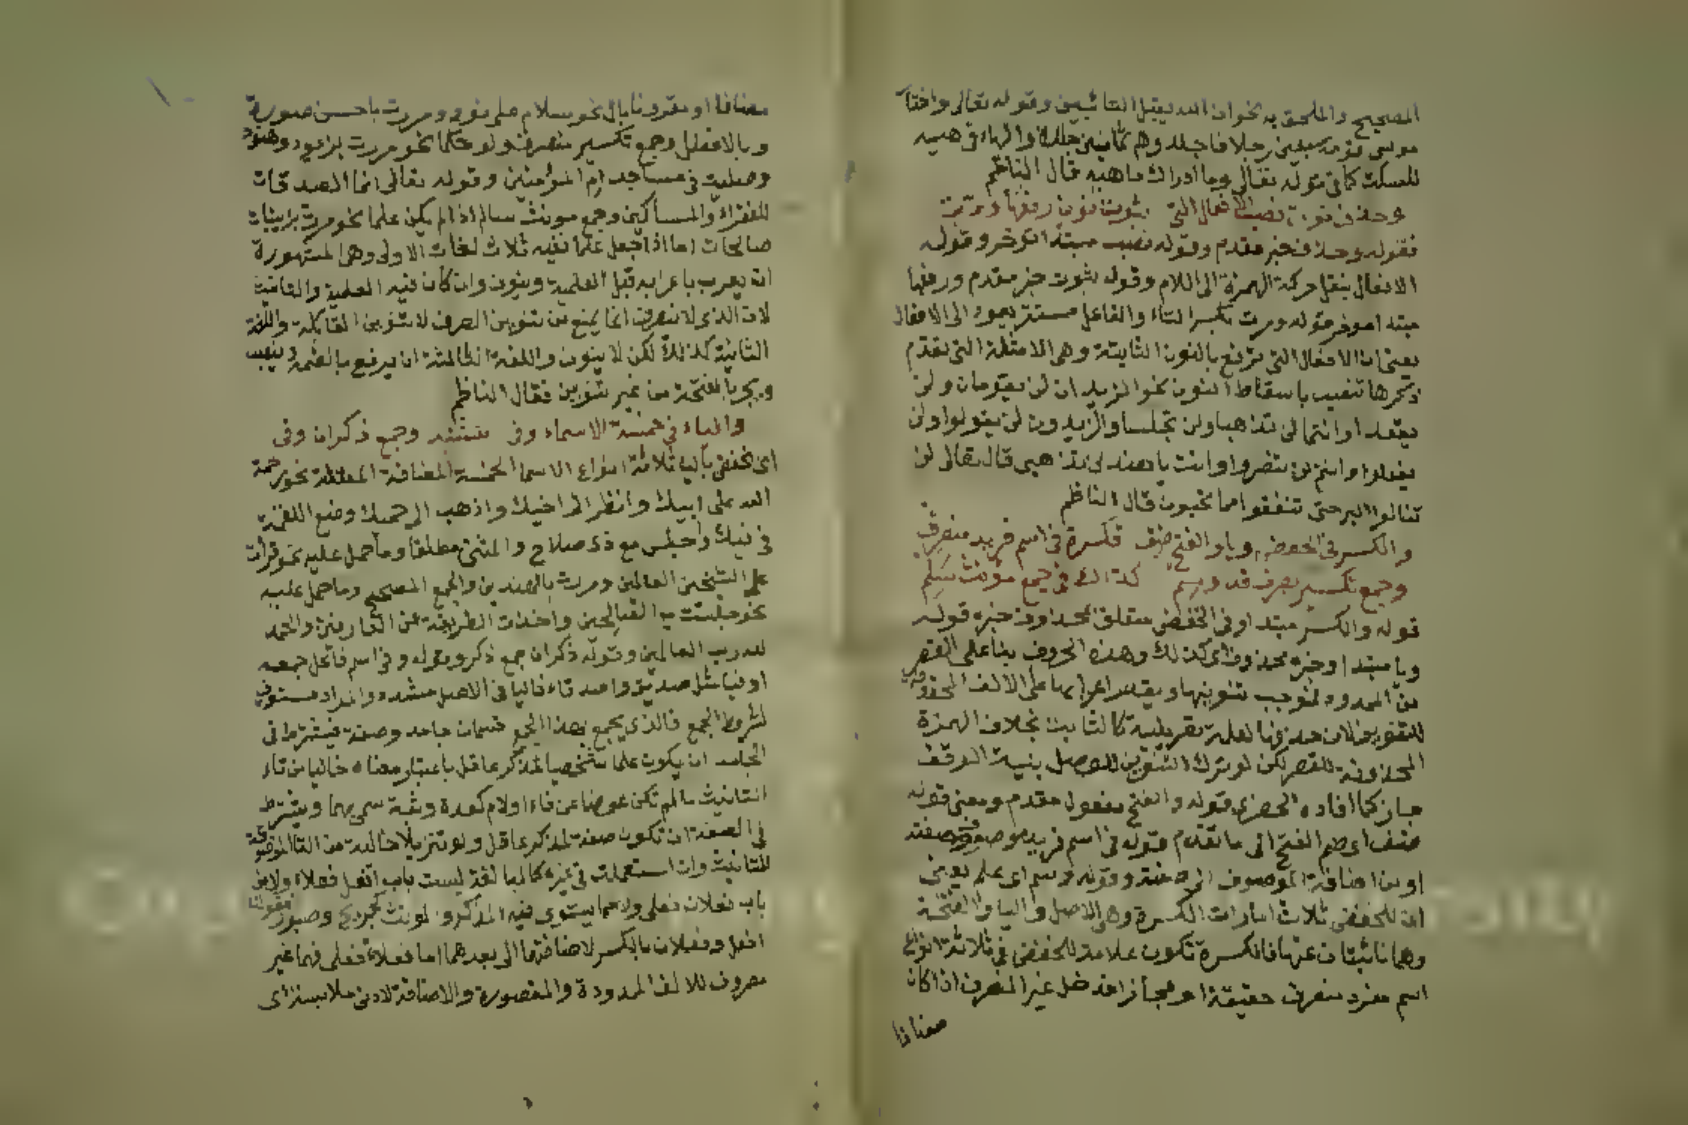 الصحيح والملحق به نحو ان الله يقبل التائبين وقوله تعالى واختار
موسى قومه سبعين رجلا فاجلدوهم ثمانين جلدة والهاء في هيه
للسكت كما في قوله تعالى وما ادراك ماهيه قال الناظم
وحذف نون نصب الافعال التي بثبوت نون رفعها
فقوله وحذف خبر مقدم وقوله نصب مبتدا مؤخر وقوله
الافعال بنقل حركة الهمزة الى اللام وقوله بثبوت خبر مقدم ورفعها
مبتدا مؤخر قوله ومرت بكسر التاء والفاعل مستتر يعود الى الافعال
يعني ان الافعال التي ترفع بالنون الثابتة وهي الامثلة التي تقدم
ذكرها تنصب باسقاط النون نحو الزيدان لن يقوما ولن
يقعدا وانتما لن تذهبا ولن تجلسا والزيدون لن يقولوا ولن
يفعلوا وانتم لن تنصروا وانت يا هند لن تذهبي قال تعالى لن
تنالوا البر حتى تنفقوا مما تحبون قال الناظم
والكسر في الخفض ويا والفتح ضف فكسرة في اسم فريد منصرف
وجمع تكسير بصرف قد وسم كذاك في جمع مؤنث سلم
قوله والكسر مبتدا وفي الخفض متعلق بمحذوف خبره قوله
ويا مبتدا وخبره محذوف اي كذلك وهذه الحروف بناء على القصر
من الممدود لموجب تنوينها ويقدر اعرابها على الالف المحذوفة
للتنوين لان حذفها لعلة تصريفية كالثابت بخلاف الهمزة
المحذوفة للقصر لكن لو ترك التنوين للوصل بنية الوقف
جاز كما افاده الخضري قوله والفتح مفعول مقدم ومعنى قوله
ضف اي ضم الفتح الى ما تقدم قوله في اسم فريد موصوف وصفته
او من اضافة الموصوف الى صفته وقوله وسم اي علم يعني
ان للخفض ثلاث امارات الكسرة وهي الاصل والياء والفتحة
وهما نائبتان عنها فالكسرة تكون علامة للخفض في ثلاثة انواع
اسم مفرد منصرف حقيقة او مجازا فدخل غير المصرف اذا كان
مضافا
مضافا او مقرونا بال نحو سلام على نوح ومررت باحسن صورة
وبالافضل وجمع تكسير منصرف ولو حكما نحو مررت بزيود وهنود
وصليت في مساجد ام المؤمنين وقوله تعالى انما الصدقات
للفقراء والمساكين وجمع مؤنث سالم اذا لم يكن علما نحو مررت بزينبات
صالحات اما اذا جعل علما ففيه ثلاث لغات الاولى وهي المشهورة
ان يعرب باعرابه قبل العلمية وينون وان كان فيه العلمية والتانيث
لان الذي لا ينصرف انما يمنع من تنوين الصرف لا تنوين المقابلة واللغة
الثانية كذلك لكن لا ينون واللغة الثالثة ان يرفع بالضمة وينصب
ويجر بالفتحة من غير تنوين فقال الناظم
والياء في خمسة الاسماء وفي وجمع ذكران وفي
اي تخفض بالياء ثلاثة انواع الاسما الخمسة المضافة المعتلة نحو رحمة
الله على ابيك وانظر الى اخيك واذهب الى حميك وضع اللقمة
في فيك واجلس مع ذي صلاح والمثنى مطلقا وما حمل عليه نحو قرات
على الشيخين العالمين ومررت بالهندين والجمع الصحيح وما حمل عليه
نحو جلست مع الصالحين واخذت الطريقة عن العارفين والحمد
لله رب العالمين وقوله ذكران جمع ذكر وقوله وفي اسم فاعل جمعه
او فيا مثل صديق واحد تاء فاليا في الاصل مشدد والمراد مستوفي
لشروط الجمع فالذي يجمع بهذا الجمع قسمان جامد وصفة فيشترط في
الجامد ان يكون علما شخصيا لمذكر عاقل باعتبار معناه خاليا من تاء
التانيث ما لم تكن عوضا عن فاء او لام كعدة وثبة سمي بهما ويشترط
في الصفة ان تكون صفة لمذكر عاقل ولو تنزيلا خالية من التا الموضوعة
للتانيث وان استعملت في غيره كالمبالغة ليست باب افعل فعلاء ولا من
باب فعلان فعلى ولا مما يستوي فيه المذكر والمؤنث كجريح وصبور فقولنا
افعل وفعلان بالكسر لاضافتهما الى بعدهما اما فعلاء وفعلى فهما غير
مصروف للالف الممدودة والمقصورة والاضافة لادنى ملابسة اي